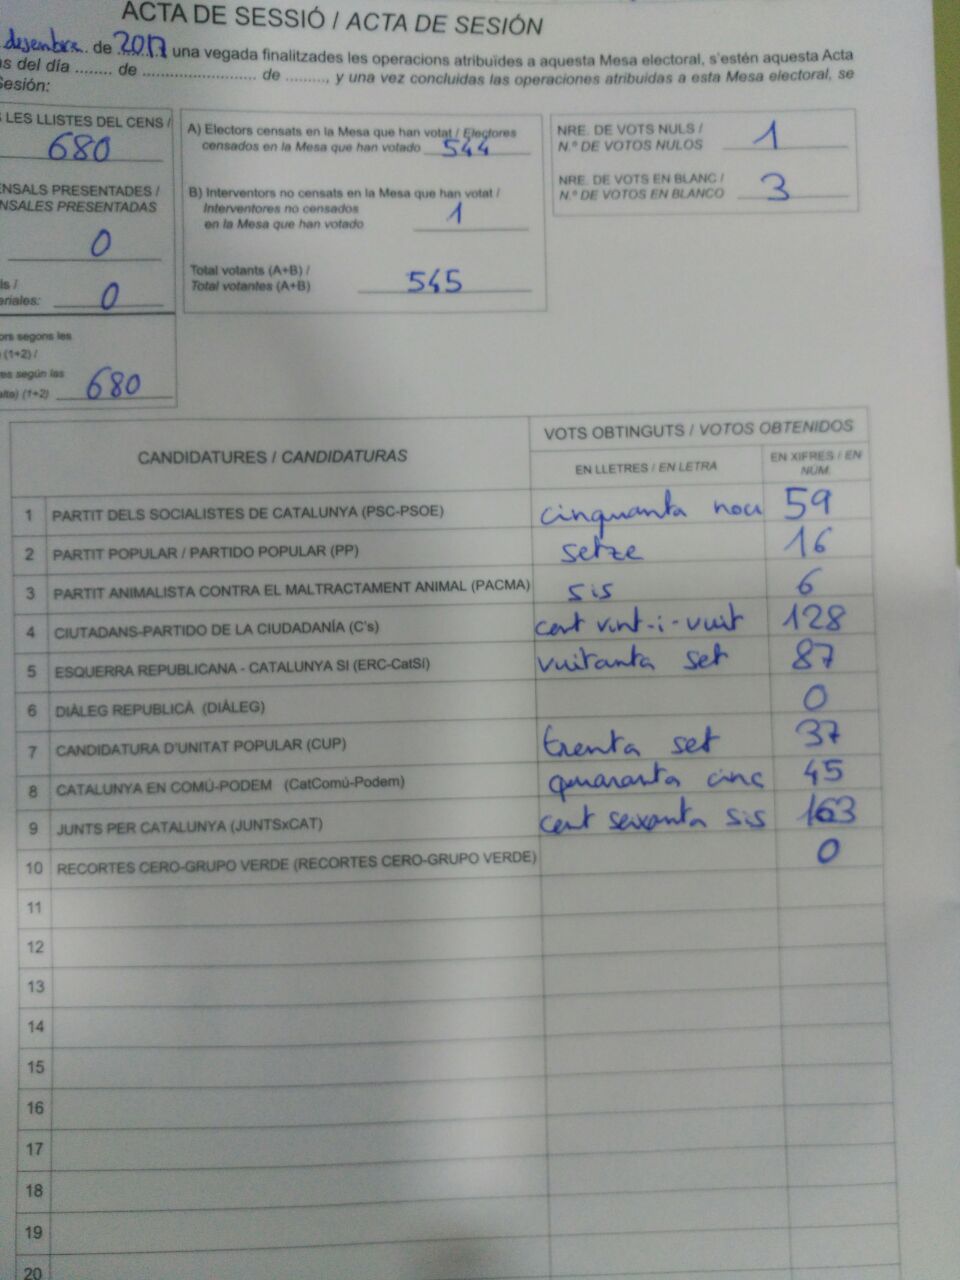 ACTA DE SESSIÓ / ACTA DE SESIÓN
desembre de 2017 una vegada finalitzades les operacions atribuïdes a aquesta Mesa electoral, s'estén aquesta Acta
as del día ........ de .......................... de ........., y una vez concluidas las operaciones atribuidas a esta Mesa electoral, se
Sesión:
LES LLISTES DEL CENS /
680
ENSALS PRESENTADES /
NSALES PRESENTADAS
0
ls /
eriales: 0
ors segons les
(1+2) /
es según las
alto) (1+2) 680
A) Electors censats en la Mesa que han votat / Electores
censados en la Mesa que han votado 544
B) Interventors no censats en la Mesa que han votat /
Interventores no censados 1
en la Mesa que han votado
Total votants (A+B) /
Total votantes (A+B) 545
NRE. DE VOTS NULS / 1
N.º DE VOTOS NULOS
NRE. DE VOTS EN BLANC / 3
N.º DE VOTOS EN BLANCO
CANDIDATURES / CANDIDATURAS
VOTS OBTINGUTS / VOTOS OBTENIDOS
EN LLETRES / EN LETRA
EN XIFRES / EN
NÚM.
1 PARTIT DELS SOCIALISTES DE CATALUNYA (PSC-PSOE) cinquanta nou 59
2 PARTIT POPULAR / PARTIDO POPULAR (PP) setze 16
3 PARTIT ANIMALISTA CONTRA EL MALTRACTAMENT ANIMAL (PACMA) sis 6
4 CIUTADANS-PARTIDO DE LA CIUDADANÍA (C's) cent vint-i-vuit 128
5 ESQUERRA REPUBLICANA - CATALUNYA SÍ (ERC-CatSí) vuitanta set 87
6 DIÀLEG REPUBLICÀ (DIÀLEG) 0
7 CANDIDATURA D'UNITAT POPULAR (CUP) trenta set 37
8 CATALUNYA EN COMÚ-PODEM (CatComú-Podem) quaranta cinc 45
9 JUNTS PER CATALUNYA (JUNTSxCAT) cent seixanta sis 163
10 RECORTES CERO-GRUPO VERDE (RECORTES CERO-GRUPO VERDE) 0
11
12
13
14
15
16
17
18
19
20